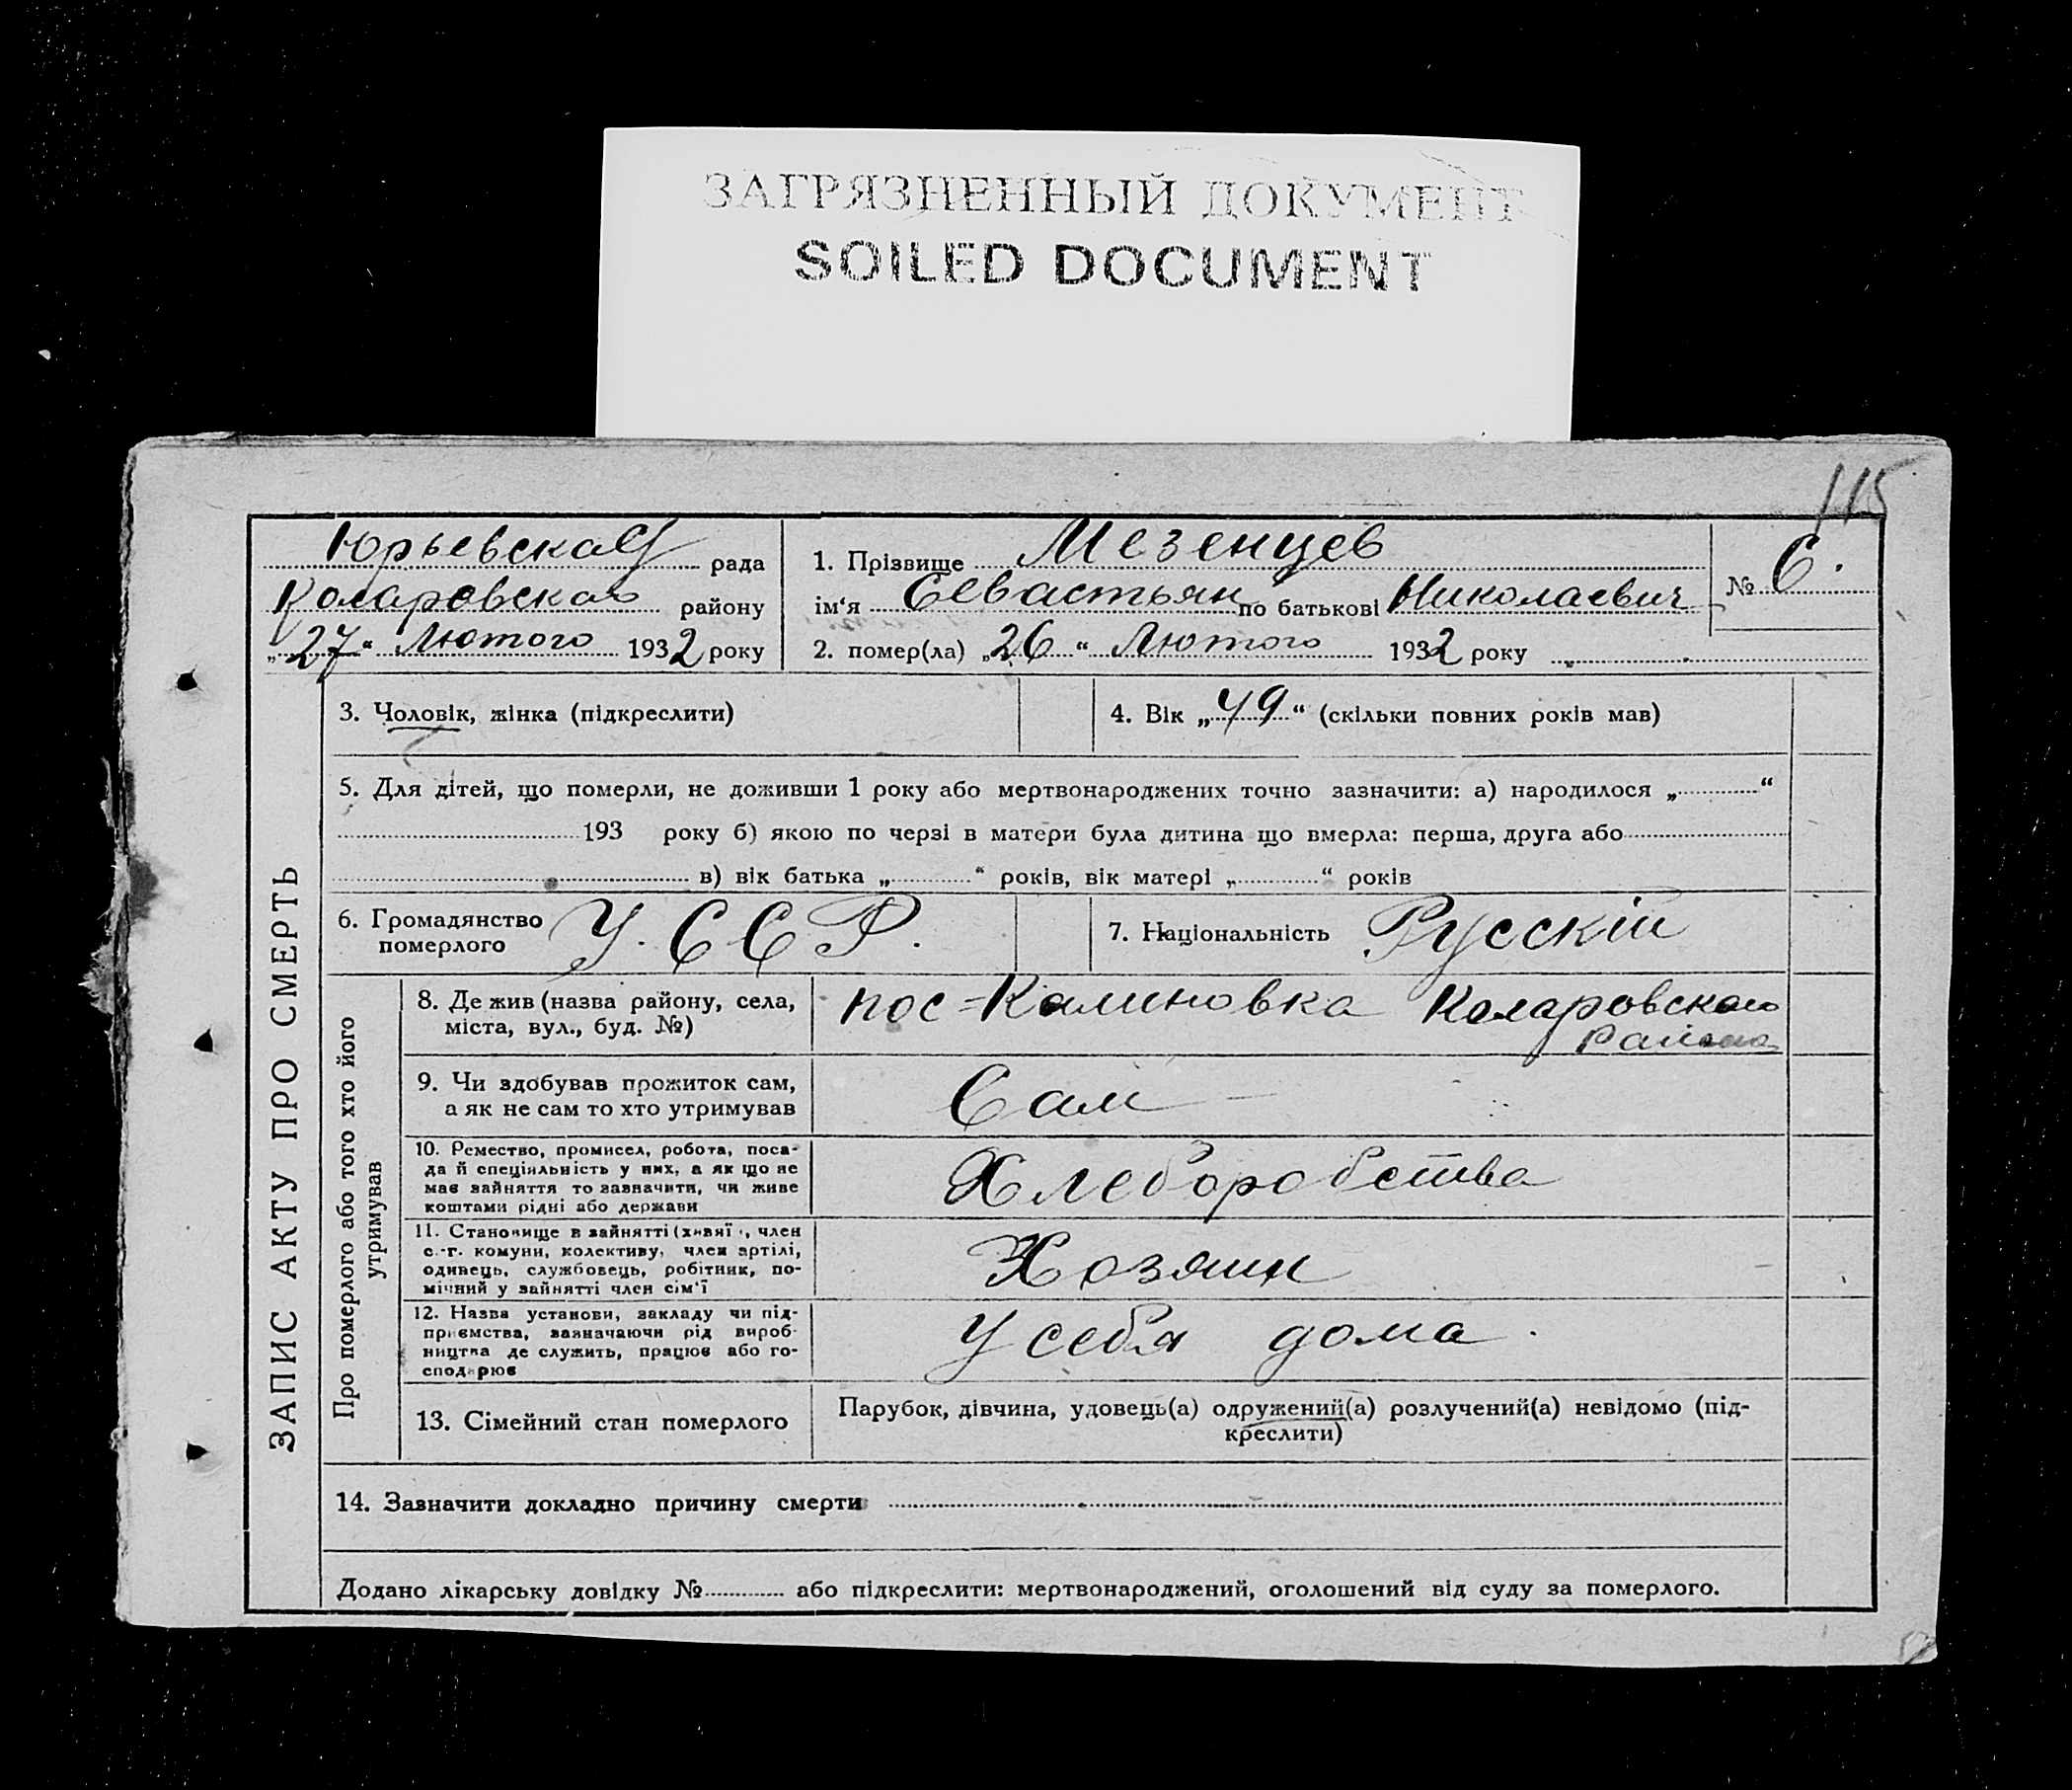 ЗАГРЯЗНЕННЫЙ ДОКУМЕНТ
SOILED DOCUMENT
115
Юрьевская рада
Коларовского району
„27“ Лютого 1932 року
1. Прізвище Мезенцев
ім‘я Севастьян по батькові Николаевич
2. помер(ла) „26“ Лютого 1932 року
№ 6.
ЗАПИС АКТУ ПРО СМЕРТЬ
3. Чоловік, жінка (підкреслити)
4. Вік „49“ (скільки повних років мав)
5. Для дітей, що померли, не доживши 1 року або мертвонароджених точно зазначити: а) народилося „ “
193 року б) якою по черзі в матери була дитина що вмерла: перша, друга або
в) вік батька „ “ років, вік матері „ “ років
6. Громадянство
померлого
У. ССР.
7. Національність Русскій
Про померлого або того хто його
утримував
8. Де жив (назва району, села,
міста, вул., буд. №)
пос=Калиновка Коларовского
Района
9. Чи здобував прожиток сам,
а як не сам то хто утримував
Сам
10. Ремество, промисел, робота, поса-
да й спеціяльність у них, а як що не
має зайняття то зазначити, чи живе
коштами рідні або держави
Хлеборобства
11. Становище в зайнятті (хазяї , член
с.-г. комуни, колективу, член артілі,
одинець, службовець, робітник, по-
мічний у зайнятті член сім‘ї
Хозяин
12. Назва установи, закладу чи під-
приємства, зазначаючи рід вироб-
ництва де служить, працює або го-
сподарює
У себя дома.
13. Сімейний стан померлого
Парубок, дівчина, удовець(а) одружений(а) розлучений(а) невідомо (під-
креслити)
14. Зазначити докладно причину смерти
Додано лікарську довідку № або підкреслити: мертвонароджений, оголошений від суду за померлого.